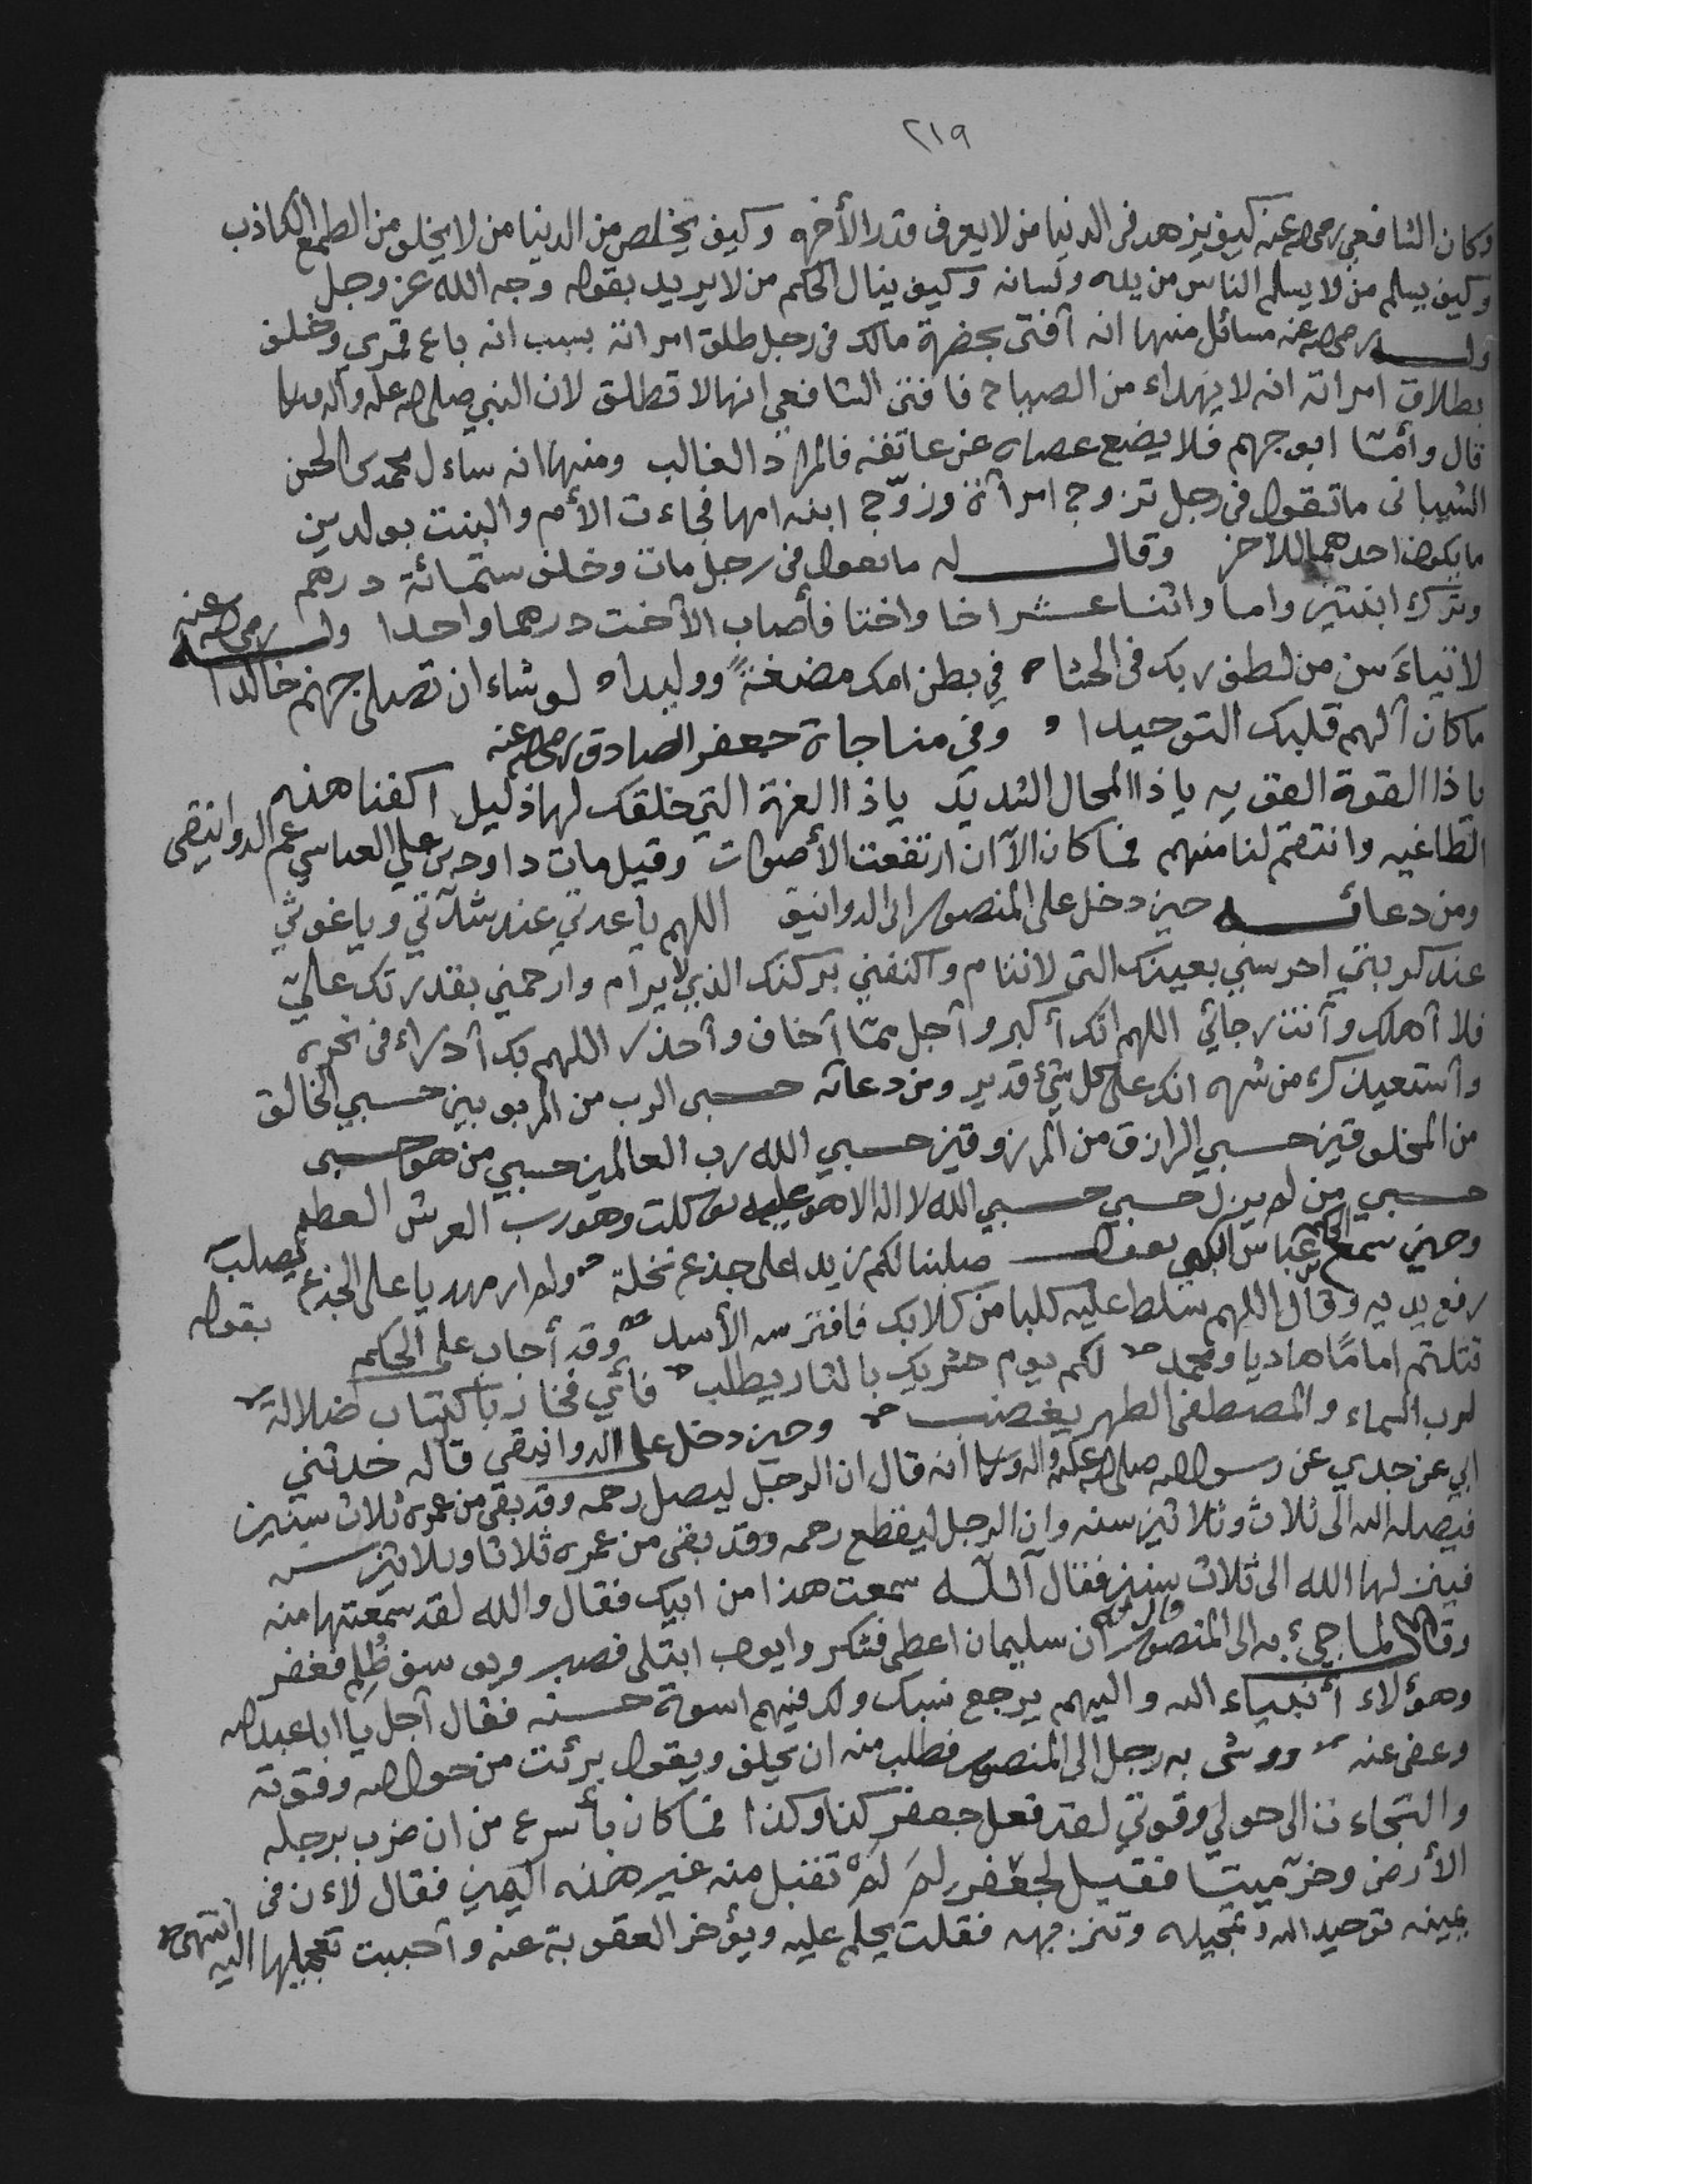 ٢١٩
وكان الشافعي رضي الله عنه كيف يزهد في الدنيا من لا يعرف قدر الأخره وكيف يخلص من الدنيا من لا يخلو من الطمع الكاذب
وكيف يسلم من لا يسلم الناس من يده ولسانه وكيف ينال الحكم من لا يريد بقوله وجه الله عز وجل
وله رضي الله عنه مسائل منها انه أفتى بحضرة مالك في رجل طلق امراته بسبب انه باع قمري وحلف
بطلاق امراته انه لا يهداء من الصياح فافتى الشافعي انها لا تطلق لان النبي صلى الله عليه وآله وسلم
قال وأمّا ابو جهم فلا يضع عصاه عن عاتقه فالمراد الغالب ومنها انه ساءل محمد بن الحسن
الشيباني ما تقول في رجل تزوج امرأة وزوّج ابنه امها فجاءت الأم والبنت بولدين
ما يكون احدهما للاخر وقال له ما تقول في رجل مات وخلف ستمائة درهم
وترك ابنتين واما واثنا عشر اخا واختا فأصاب الأخت درهما واحدا وله رضي الله عنه
لا تيأسن من لطف ربك في الحشا ه في بطن امك مضغةً ووليدا ه لو شاء ان تصلى جهنم خالدا
ما كان ألهم قلبك التوحيدا ه وفي مناجاة جعفر الصادق رضي الله عنه
يا ذا القوة القويه يا ذا المحال الشديد يا ذا العزة التي خلقك لها ذليل اكفنا هذه
الطاغيه وانتقم لنا منهم فما كان الآ ان ارتفعت الأصوات وقيل مات داود بن علي العباسي عم الدوانيقي
ومن دعائه حين دخل على المنصور الدوانيق اللهم يا عدتي عند شدّتي ويا غوثي
عند كربتي احرسني بعينك التي لا تنام واكنفني بركنك الذي لا يرام وارحمني بقدرتك عليّ
فلا أهلك وأنت رجائي اللهم انك أكبر وأجل ممّا أخاف وأحذر اللهم بك أدراء في نحره
وأستعيذك من شره انك على كل شيء قدير ومن دعائه حسبى الرب من المربوبين حسبي الخالق
من المخلوقين حسبي الرازق من المرزوقين حسبي الله رب العالمين حسبي من هو حسبى
حسبي من لم يزل حسبي حسبي الله لا اله الا هو عليه توكلت وهو رب العرش العظيم
وحين سمع الحكم بن عباس الكلبي يقول صلبنا لكم زيدا على جذع نخلة ولم ار مهديا على الجذع يصلب
رفع يديه وقال اللهم سلط عليه كلبا من كلابك فافترسه الأسد وقد أجاب على الحكيم بقوله
قتلتم امامًا هاديا ومحمد لكم يوم حشر بك بالثار يطلب فأي فخار باكتساب ضلالة
لرب السماء والمصطفى الطهر يغضب وحين دخل على الدوانيقي قال له حدثني
ابي عن جدي عن رسول الله صلى الله عليه واله وسلم أنه قال ان الرجل ليصل رحمه وقد بقي من عمره ثلاث سنين
فيصله الله الى ثلاث وثلاثين سنه وان الرجل ليقطع رحمه وقد بقى من عمره ثلاثا وثلاثين سنه
فيتنزلها الله الى ثلاث سنين فقال آلله سمعت هذا من ابيك فقال والله لقد سمعتها منه
وقال لما جيء به الى المنصور ان سليمان اعطى فشكر وايوب ابتلى فصبر ويوسف ظُلم فغفر
وهؤلاء أنبياء الله واليهم يرجع نسبك ولك فيهم اسوة حسنه فقال أجل يا ابا عبد الله
وعفى عنه ووشى به رجل الى المنصور فطلب منه ان يحلف ويقول برئت من حول الله وقوته
والتجاءت الى حولي وقوتي لقد فعل جعفر كذا وكذا فما كان بأسرع من ان ضرب برجله
الأرض وخرّ ميتا فقيل لجعفر لِمَ لَمْ تقبل منه غير هذه اليمين فقال لاءن في
يمينه توحيد الله وتبجيله وتنزيهه فقلت يحلم عليه ويؤخر العقوبة عنه وأحببت تعجيلها اليه انتهى